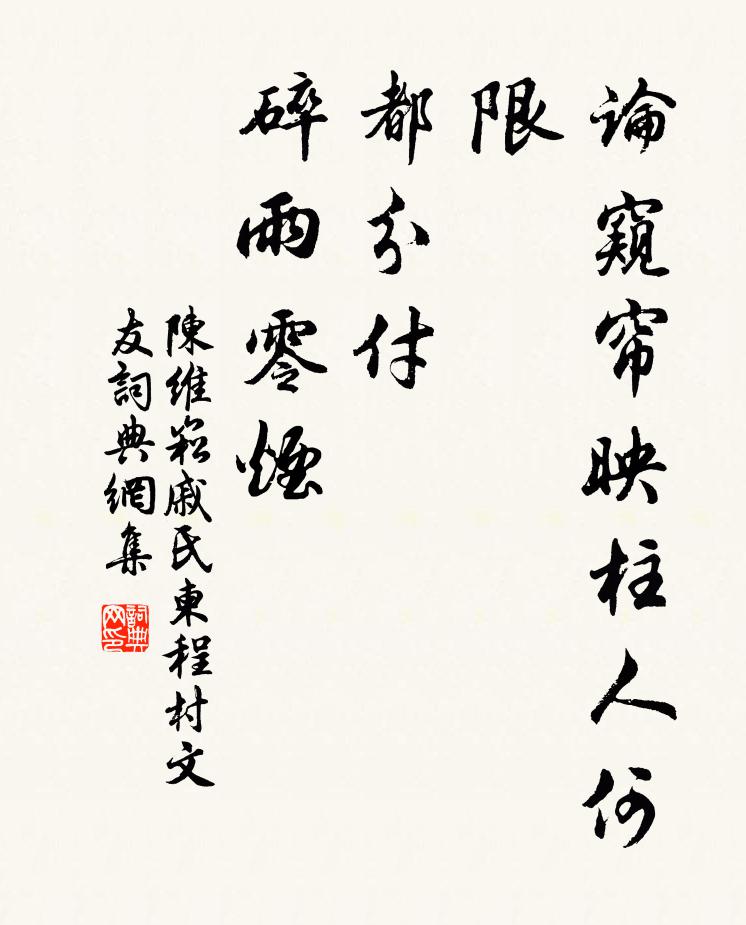 論窺帘映柱人何
限
都分付
碎雨零煙
陳維崧戚氏東程村文
友詞典網集
詞典网印